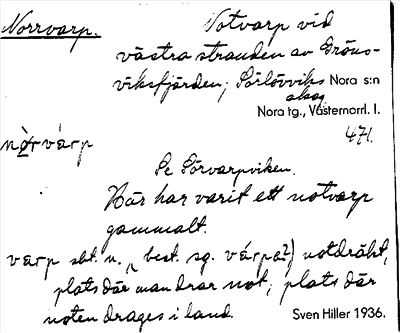 Norrvarp. Notvarp vid
västra stranden av Gröns-
viksfjärden; Sörlövviks
skog
Nora s:n
Nora tg., Västernorrl. l.
471.
nòrvárp
Se Sörvarpviken.
Här har varit ett notvarp
gammalt.
varp sbt. n., best. sg. várpə2) notdräkt,
plats där man drar not; plats där
noten drages i land.
Sven Hiller 1936.